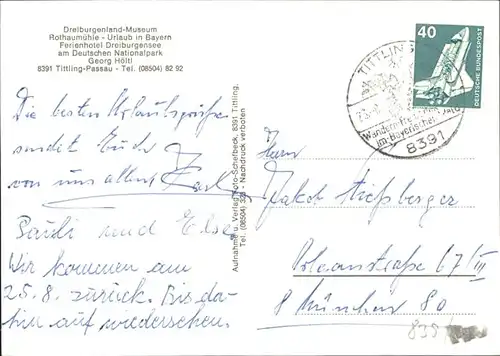 Dreiburgenland-Museum
Rothaumühle - Urlaub in Bayern
Ferienhotel Dreiburgensee
am Deutschen Nationalpark
Georg Höltl
8391 Tittling-Passau - Tel. (08504) 82 92
Die besten Urlaubsgrüße
sendet Euch
von uns allen Karl
Pauli und Else.
Wir kommen am
25.8. zurück. Bis da-
hin auf wiedersehen.
Aufnahme u. Verlag Foto-Schefbeck, 8391 Tittling,
Tel. (08504) 338 - Nachdruck verboten
40
DEUTSCHE BUNDESPOST
TITTLING
Wandern
im Bayerischen
8391
Herrn
Jakob
67/III
8 München 80